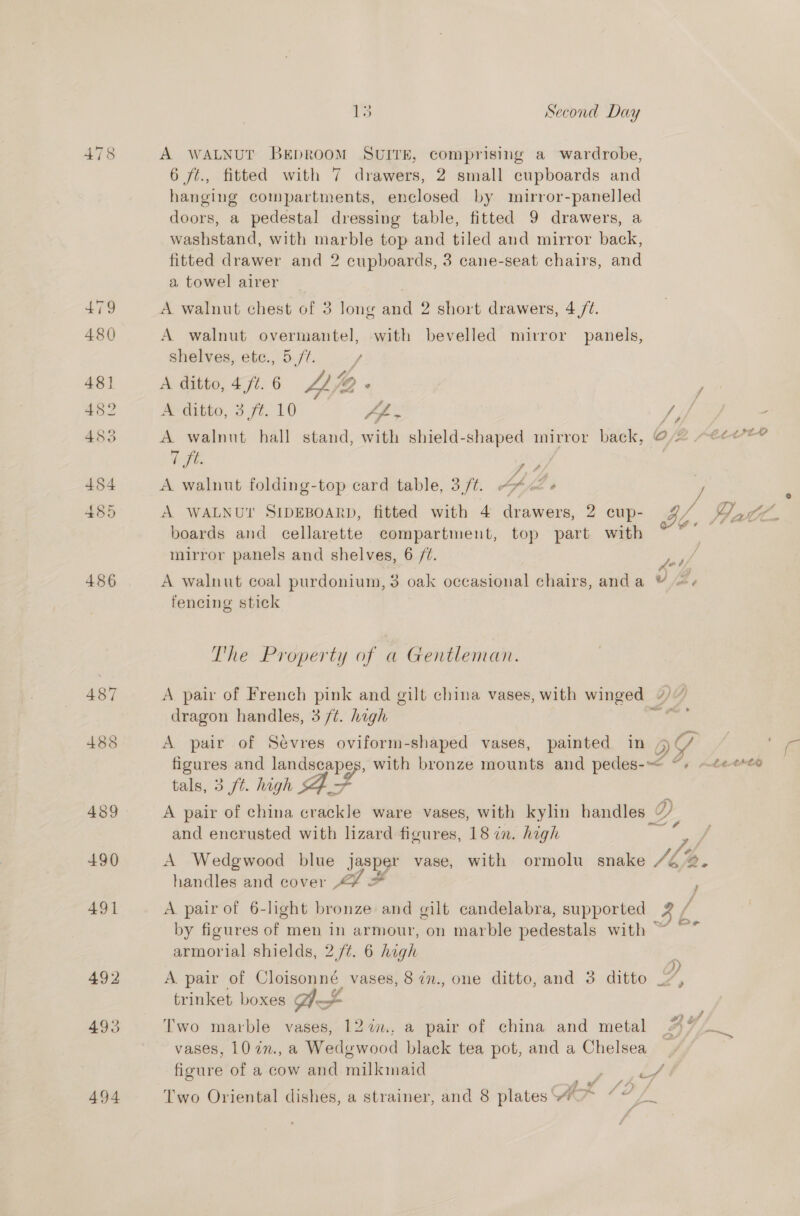 13 Second Day
478 A WALNUT BEDROOM SUITE, comprising a wardrobe,
6 ft., fitted with 7 drawers, 2 small cupboards and
hanging compartments, enclosed by mirror-panelled
doors, a pedestal dressing table, fitted 9 drawers, a
washstand, with marble top and tiled and mirror back,
fitted drawer and 2 cupboards, 3 cane-seat chairs, and
a towel airer
479 A walnut chest of 3 long and 2 short drawers, 4 ft.
480 A walnut overmantel, with bevelled mirror panels,
shelves, etc., 5 ft.
481 A ditto, 4 ft. 6
482 A ditto, 3 ft. 10
483 A walnut hall stand, with shield-shaped mirror back,
7 ft.
484 A walnut folding-top card table, 3 ft.
485 A WALNUT SIDEBOARD, fitted with 4 drawers, 2 cup-
boards and cellarette compartment, top part with
mirror panels and shelves, 6 ft.
486 A walnut coal purdonium, 3 oak occasional chairs, and a
fencing stick
The Property of a Gentleman.
487 A pair of French pink and gilt china vases, with winged
dragon handles, 3 ft. high
488 A pair of Sèvres oviform-shaped vases, painted in
figures and landscapes, with bronze mounts and pedes-
tals, 3 ft. high
489 A pair of china crackle ware vases, with kylin handles
and encrusted with lizard figures, 18 in. high
490 A Wedgwood blue jasper vase, with ormolu snake
handles and cover
491 A pair of 6-light bronze and gilt candelabra, supported
by figures of men in armour, on marble pedestals with
armorial shields, 2 ft. 6 high
492 A pair of Cloisonné vases, 8 in., one ditto, and 3 ditto
trinket boxes
493 Two marble vases, 12 in., a pair of china and metal
vases, 10 in., a Wedgwood black tea pot, and a Chelsea
figure of a cow and milkmaid
494 Two Oriental dishes, a strainer, and 8 plates